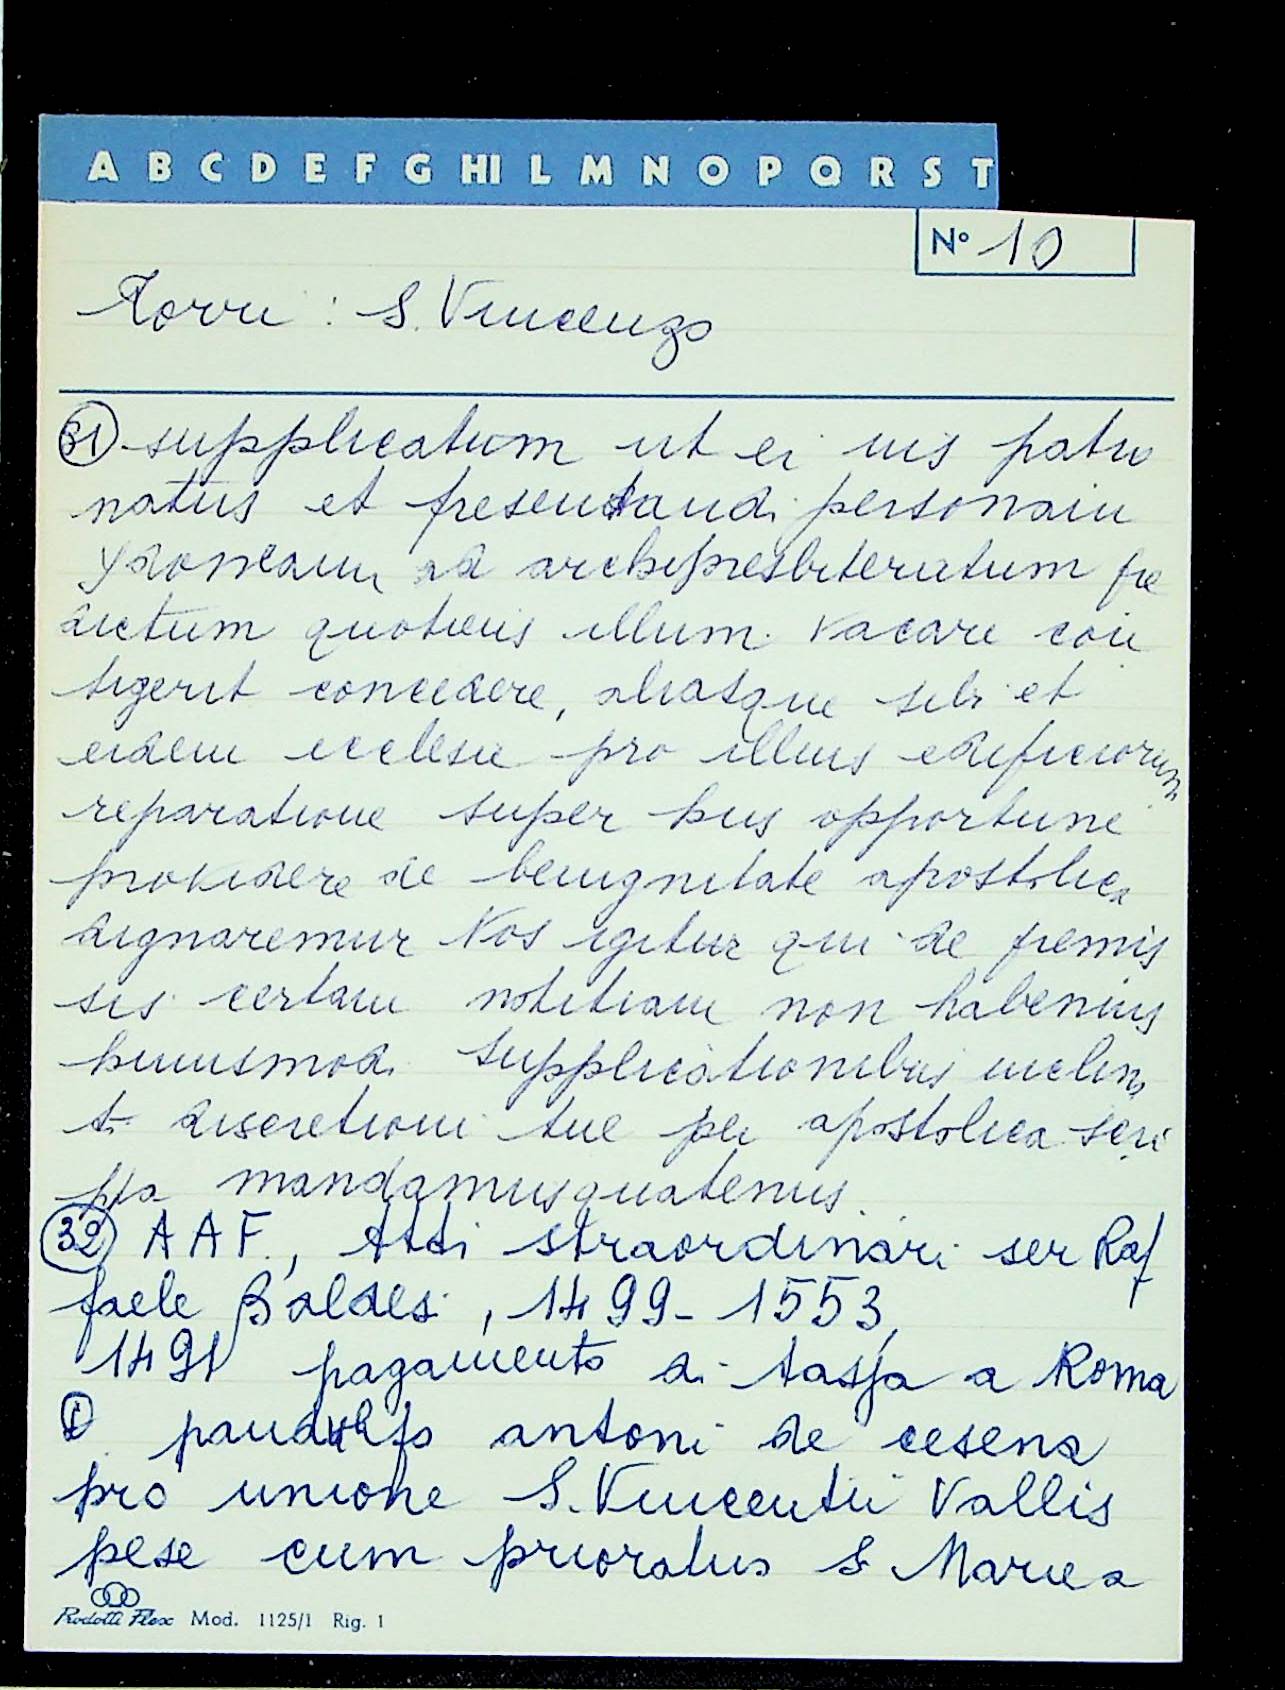 A B C D E F G HI L M N O P Q R S T
Nº 10
Torre : S. Vincenzo
31 supplicatum ut ei ius patro
natus et presentandi personam
ydoneam ad archipresbiteratum pre
dictum quotiens illum vacare con
tigerit concedere, aliasque sibi et
eidem ecclesie pro illius edificiorum
reparatione super hiis opportune
providere de benignitate apostolica
dignaremur Nos igitur qui de premis
sis certam notitiam non habemus
huiusmodi supplicationibus inclina
ti discretioni tue per apostolica scri
pta mandamus quatenus
32 AAF., Atti straordinari ser Raf
faele Baldesi, 1499-1553,
1491 pagamento di tassa a Roma
D. pandulfo antoni de cesena
pro unione S. Vincentii Vallis
pese cum prioratus S. Maria a
Rodotti Flex Mod. 1125/1 Rig. 1